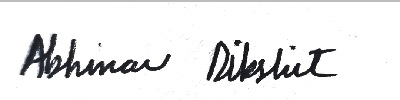 Abhinav Dikshit